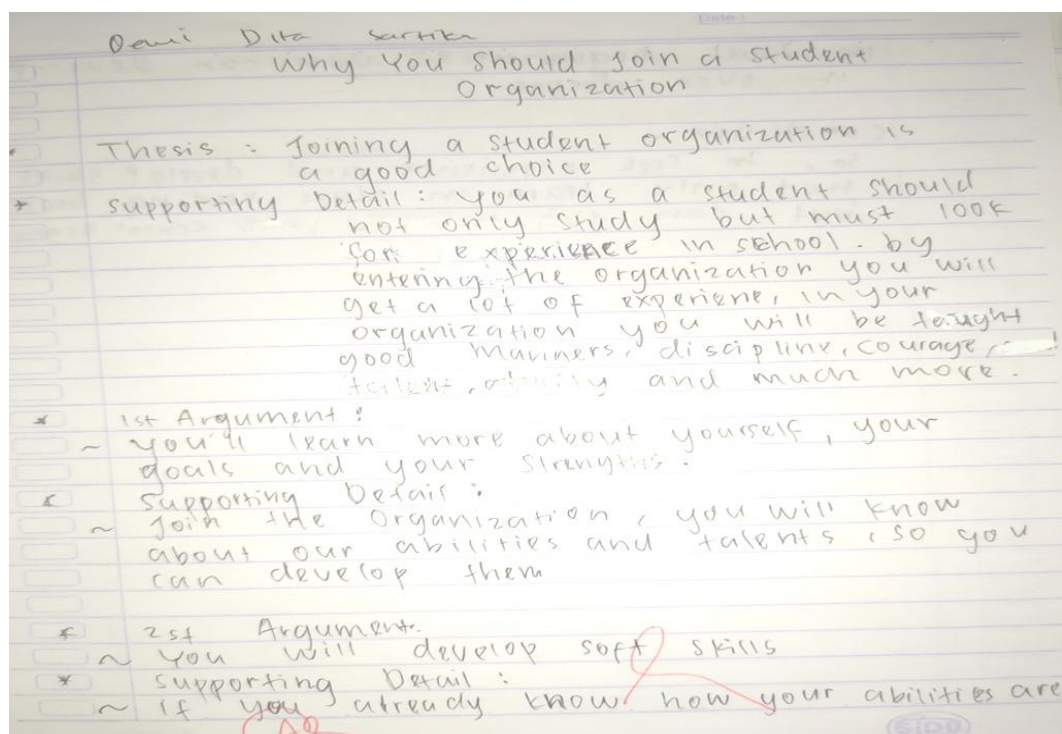 Date :
Dewi Dita Sartika
Why You Should Join a Student
Organization
Thesis : Joining a student organization is
a good choice
supporting Detail : you as a student should
not only study but must look
for experience in school. by
entering the organization you will
get a lot of experiene, in your
organization you will be taught
good manners, discipline, courage,
talent, and much more.
1st Argument :
~ you'll learn more about yourself, your
goals and your strengths.
Supporting Detail :
~ Join the Organization, you will know
about our abilities and talents, so you
can develop them
2st Argument.
~ You will develop soft skills
Supporting Detail :
~ if you already know how your abilities are
SIDU